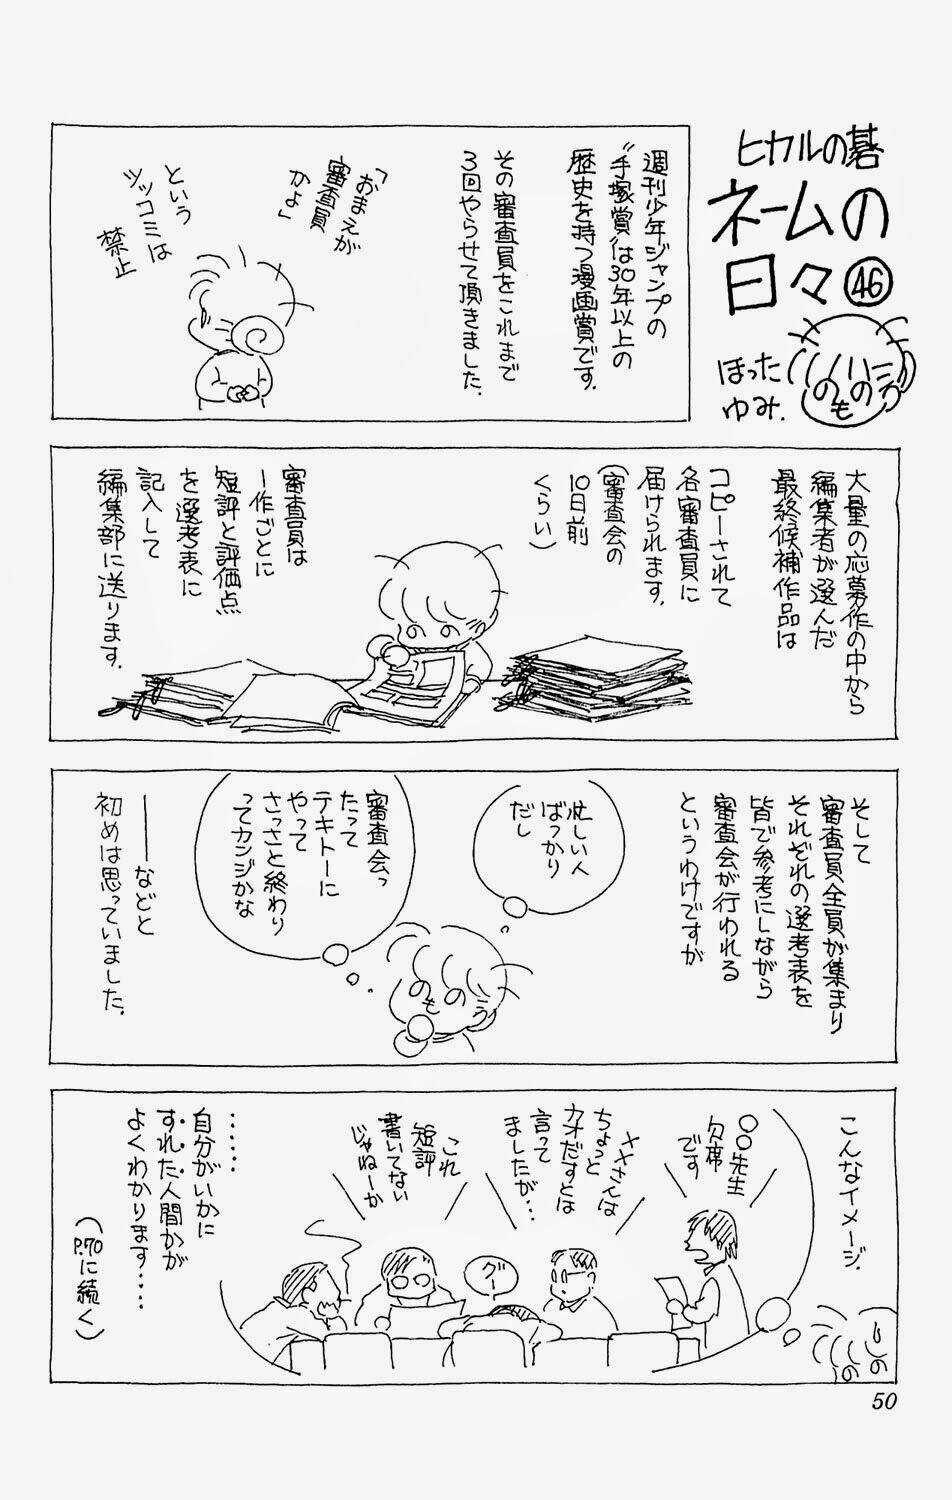 ヒカルの碁
ネームの
日々㊻
ほった
ゆみ.
週刊少年ジャンプの
〝手塚賞〟は30年以上の
歴史を持つ漫画賞です.
その審査員をこれまで
3回やらせて頂きました.
「おまえが
審査員
かよ」
という
ツッコミは
禁止
大量の応募作の中から
編集者が選んだ
最終候補作品は
コピーされて
各審査員に
届けられます.
(審査会の
10日前
くらい)
審査員は
一作ごとに
短評と評価点
を選考表に
記入して
編集部に送ります.
そして
審査員全員が集まり
それぞれの選考表を
皆で参考にしながら
審査会が行われる
というわけですが
忙しい人
ばっかり
だし
審査会っ
たって
テキトーに
やって
さっさと終わり
ってカンジかな
――などと
初めは思っていました.
こんなイメージ.
○○先生
欠席
です
××さんは
ちょっと
カオだすとは
言って
ましたが…
グー
これ
短評
書いてない
じゃねーか
‥‥‥
自分がいかに
すれた人間かが
よくわかります‥‥
(P.70に続く)
50